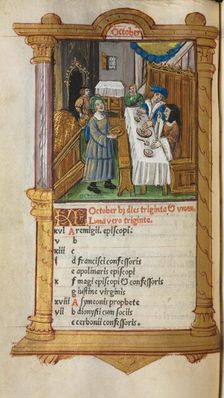 October
October hȝ dies triginta & unum.
Luna vero triginta.
xvi A remigii. episcopi.
v b
xiii c
d francisci confessoris
e apolinaris episcopi
x f magi episcopi & confessoris
g iustine virginis
xviii A symeonis prophete
vii b dionysii cum sociis
c cerbonii confessoris.